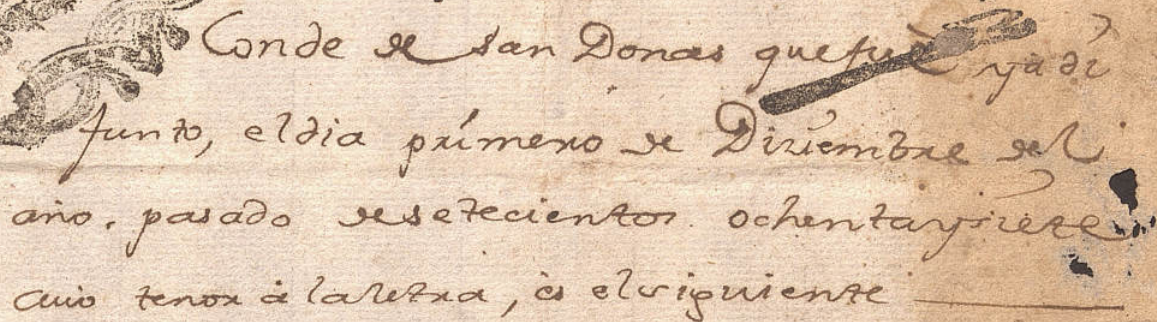 Conde de san Donas que fuè ya di
funto, el dia primero de Diziembre del
año. pasado de setecientos ochenta y siete
cuio tenor à la letra, ès el siguiente